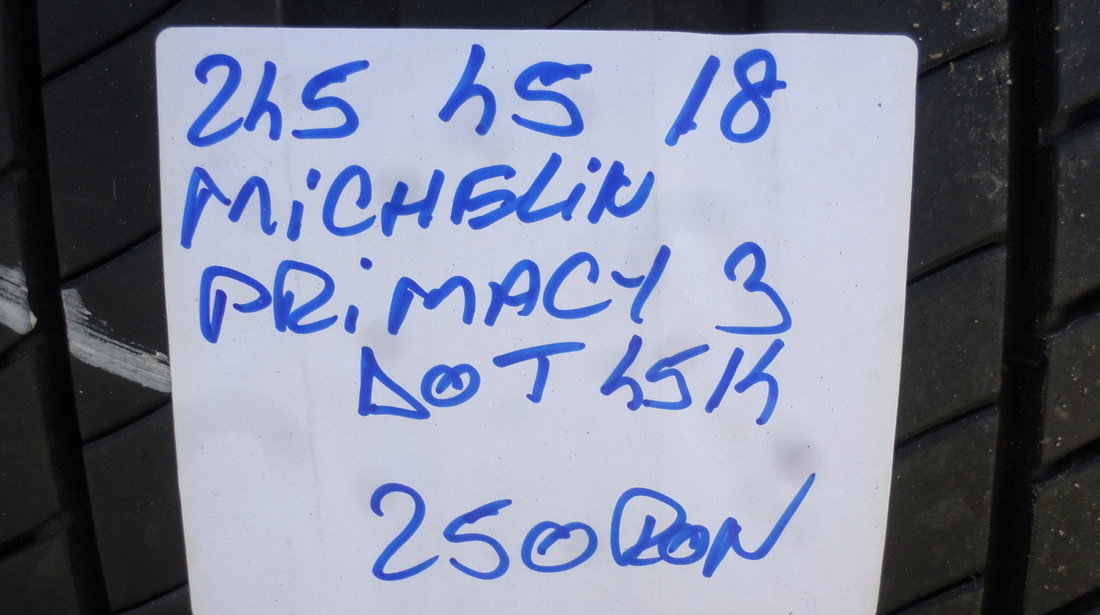 245 45 18
MiCHELiN
PRiMACY 3
DOT 4514
250 RON